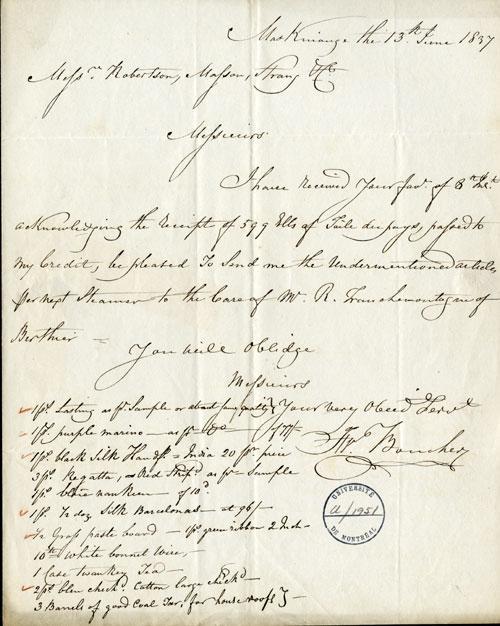 Maskinonge the 13th June 1837
Messrs. Robertson, Masson, Strang & Co
Messieurs
I have received Your fav. of 8th Inst.
acknowledging the Receipt of 599 Ells of Toile du pays, passed to
my Credit, be pleased To Send me the Undermentioned articles
per next Steamer to the Care of Mr. R. Tranchemontagne of
Berthier —
You will Oblidge
Messieurs
Your very Obeed. Servt.
Boucher
1 ps. Lasting as pr. Sample or about same quality
1 ps. purple marino — as pr. do
1 ps. black Silk Handfs. = India 20 pr. piece
3 ps. Regatta, = Red Strip'd as pr. Sample
ps. blue nankeen of 10d
1 ps. ½ doz Silk Barcelonas — at 96/-
½ Gross paste board — 1 ps. green ribbon 2 Inch —
10 White bonnet Wires, —
1 Case twankey Tea —
2 ps. bleu check'd Cotton large check'd —
3 Barrels of good Coal Tar, for house roofs } —
UNIVERSITÉ
a/1951
DE MONTREAL